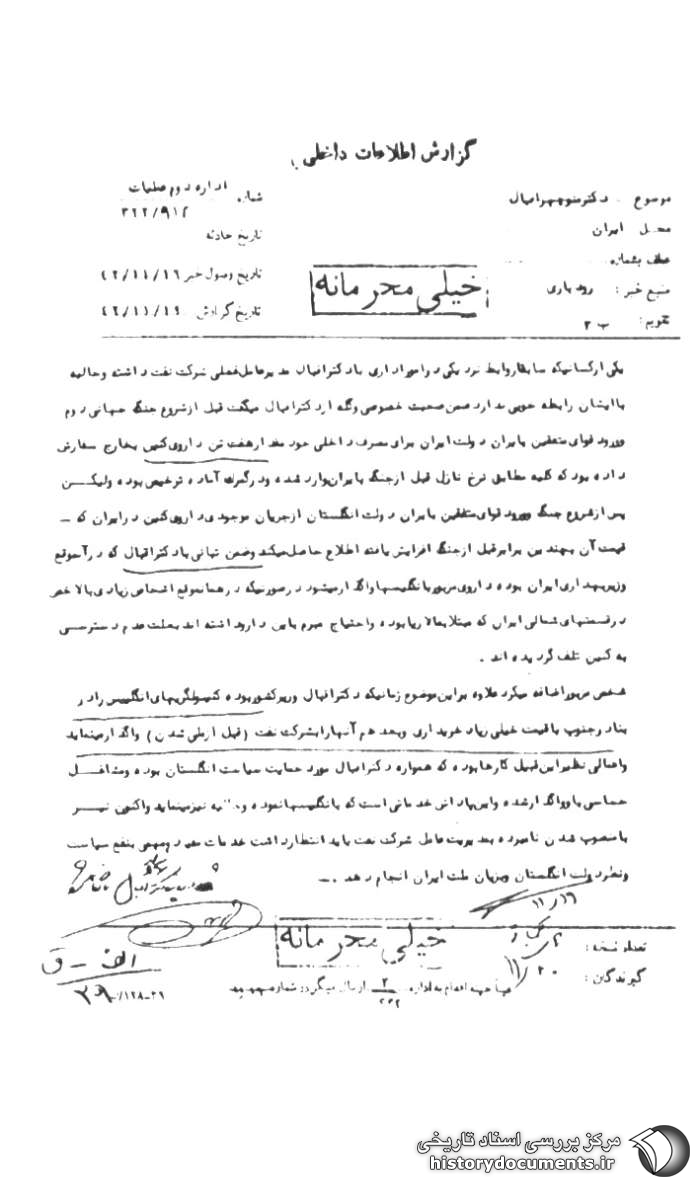 گزارش اطلاعات داخلی
موضوع دکتر منوچهر اقبال
محل ایران
عطف بشماره
منبع خبر : رودباری
تقویم : ب ۲
شماره اداره دوم عملیات
۳۲۲/۹۱۲
تاریخ حادثه
تاریخ وصول خبر ۴۲/۱۱/۱۶
تاریخ گزارش ۴۲/۱۱/۱۹
خیلی محرمانه
یکی ازکسانیکه سابقاروابط نزدیکی درامور اداری بادکتراقبال مدیرعامل فعلی شرکت نفت داشته وحالیه
باایشان رابطه خوبی ندارد ضمن صحبت خصوصی وگله ازدکتراقبال میگفت قبل ازشروع جنگ جهانی دوم
وورود قوای متفقین بایران دولت ایران برای مصرف داخلی خود مقدارهفت تن داروی کنین بخارج سفارش
داده بود که کلیه مطابق نرخ نازل قبل ازجنگ بایران وارد شده ودرگمرک آماده ترخیص بوده ولیکن
پس ازشروع جنگ وورود قوای متفقین بایران دولت انگلستان ازجریان موجودی داروی کنین درایران که -
قیمت آن بچندین برابرقبل ازجنگ افزایش یافته اطلاع حاصل میکند وضمن تبانی بادکتراقبال که درآنموقع
وزیربهداری ایران بوده داروی مزبوربانگلیسهاواگذارمیشود درصورتیکه درهمانموقع اشخاص زیادی بالاخص
درقسمتهای شمالی ایران که مبتلابمالاریابوده واحتیاج مبرم باین داروداشته اند بعلت عدم دسترسی
به کنین تلف گردیده اند .
شخص مزبوراضافه میکرد علاوه براین موضوع زمانیکه دکتراقبال وزیرکشوربوده کنسولگریهای انگلیس رادر
بنادرجنوب باقیمت خیلی زیاد خریداری وبعد هم آنهارابشرکت نفت ( قبل ازملی شدن ) واگذارمینماید
واعمالی نظیراین قبیل کارهابوده که همواره دکتراقبال مورد حمایت سیاست انگلستان بوده ومشاغل
حساسی باوواگذارشده واین پاداش خدماتی است که بانگلیسهانموده و نیزمینماید واکنون نیز
بامنصوب شدن نامبرده بمدیریت عامل شرکت نفت باید انتظارداشت خدمات مفید ومهمی بنفع سیاست
ونظردولت انگلستان وبزیان ملت ایران انجام دهد .
۱۱/۱۹
خیلی محرمانه
تعداد نسخه :
گیرندگان :
۱۱/۲۰
الف - ق
جهت اقدام به اداره ارسال میگردد شماره
مرکز بررسی اسناد تاریخی
historydocuments.ir